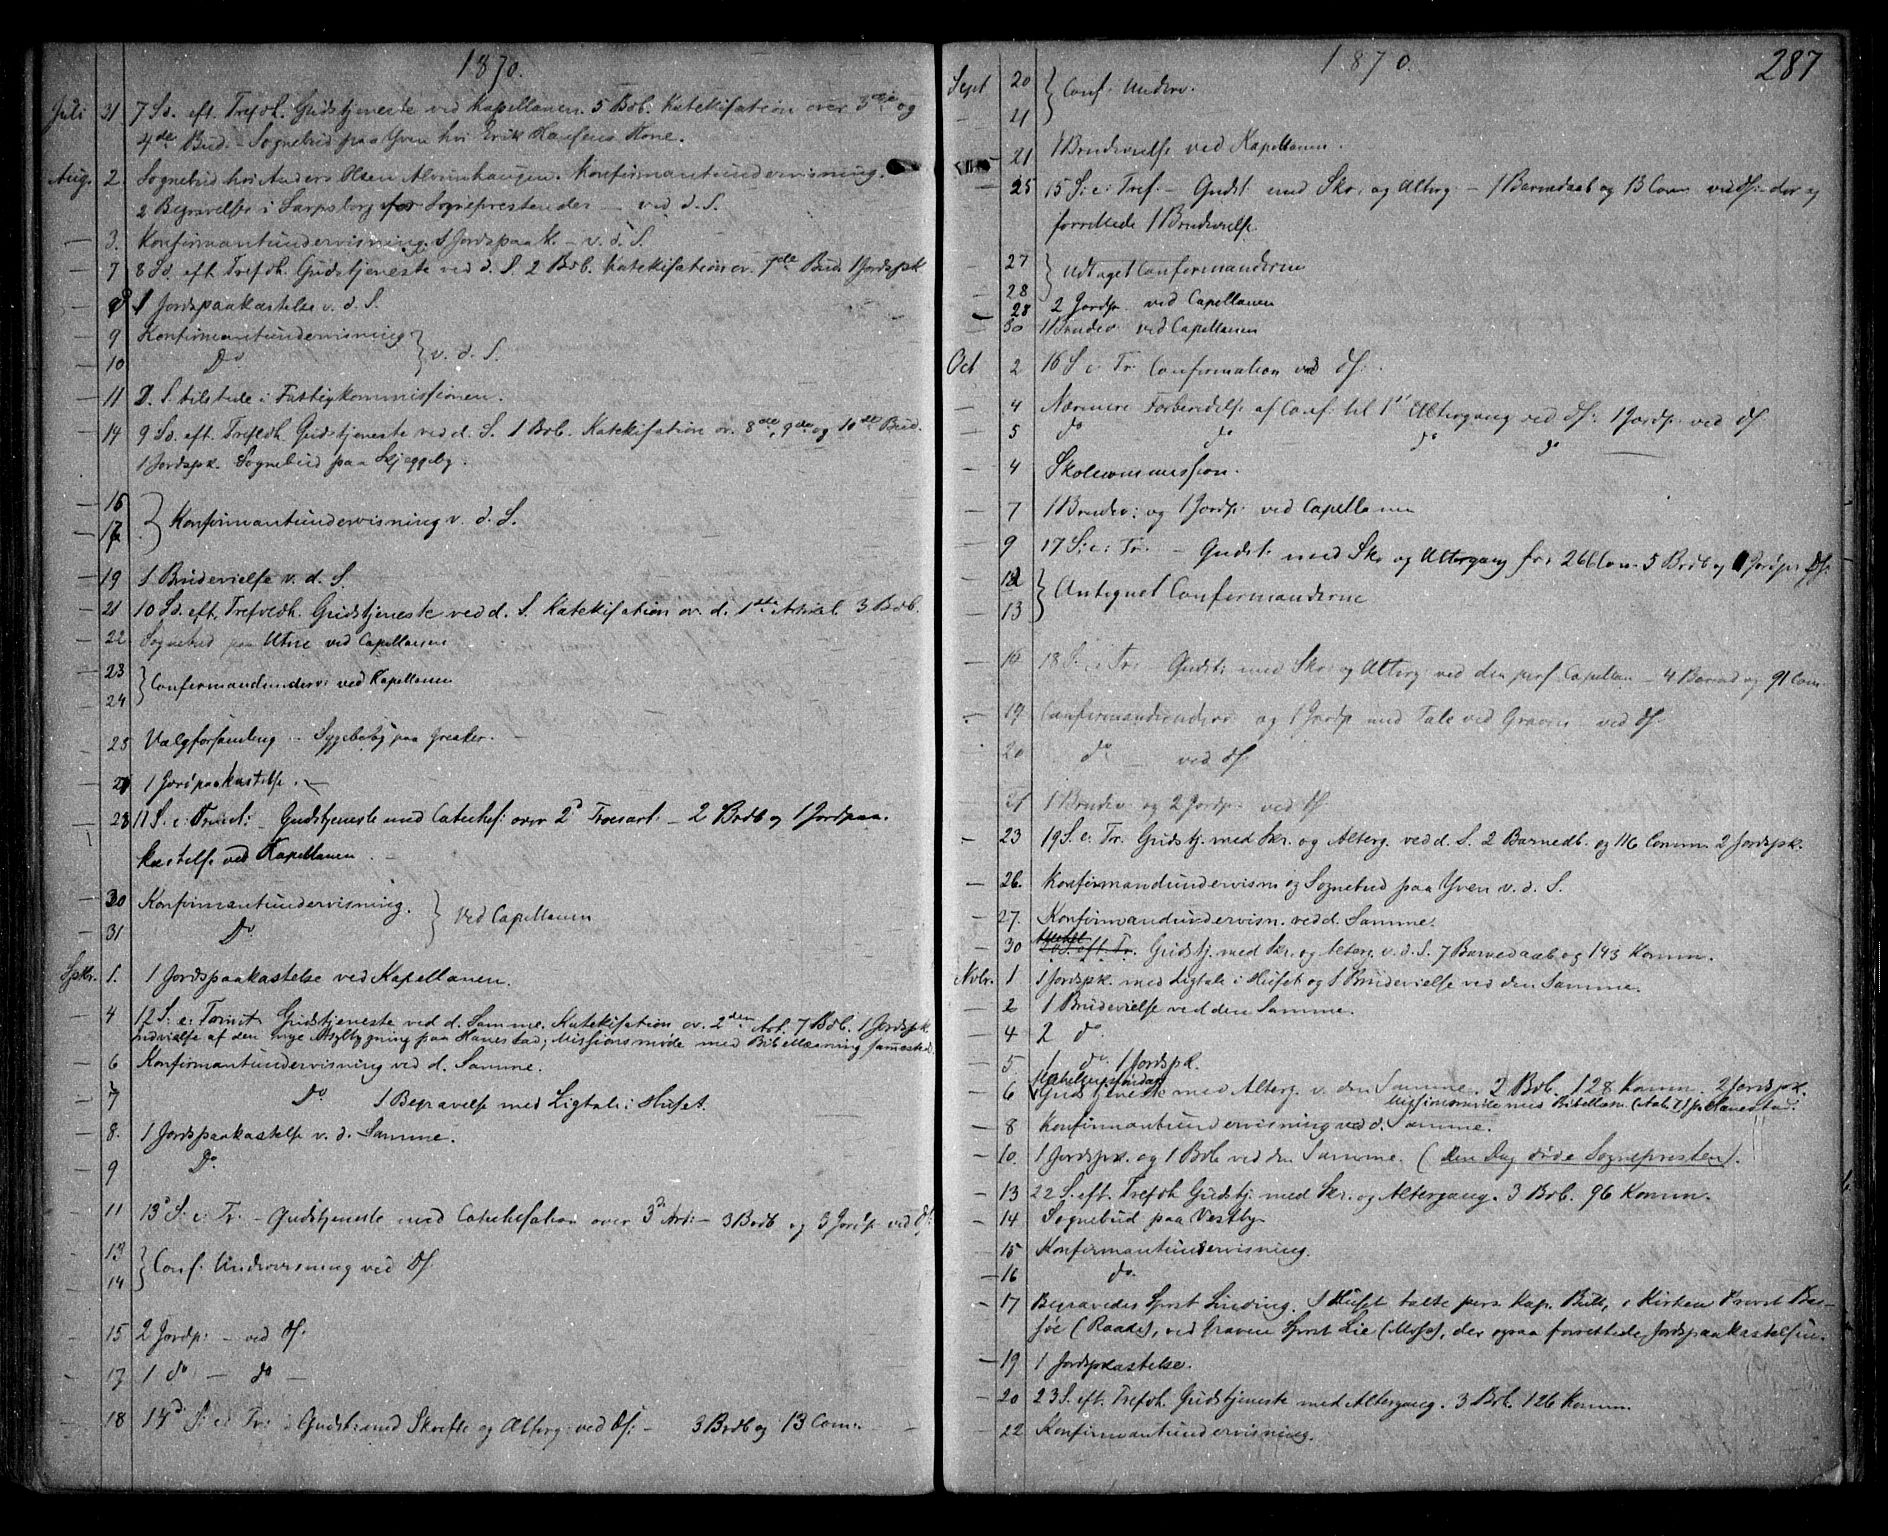 1870.
Juli 31 7 Sd. eft. Trefdh. Gudstjeneste ved Kapellanen. 5 Bdb. Katekisation over 3die og
4de Bud. - Sognebud paa Yven hos Erik Hansens Kone.
Aug. 2. Sognebud hos Anders Olsen Alvimhaugen. Konfirmantundervisning.
2 Begravelser i Sarpsborg Sognepresten der - ved d. S.
- 3. Konfirmantundervisning. 1 Jordspaak. - v. d. S.
- 7 8 Sd. eft. Trefdh. Gudstjeneste ved d. S. 2 Bdb. Katekisation ov. 7de Bud 1 Jordspk
- 8 1 Jordspaakastelse v. d. S.
- 9 Konfirmantundervisning } v. d. S.
- 10 Do
- 11 D. S. tilstede i Fattigkommissionen.
- 14 9 Sd. eft. Trefdh. Gudstjeneste ved d. S. 1 Bdb. Katekisation ov. 8de, 9de og 10de Bud.
1 Jordspk. Sognebud paa Skjeggeby.
- 16
- 17 } Konfirmantundervisning v. d. S.
- 19 1 Brudevielse v. d. S.
- 21 10 Sd. eft. Trefdh. Gudstjeneste ved d. S. Katekisation ov. d. 1ste Artikel 3 Bdb.
- 22 Sognebud paa Utne ved Capellanen
- 23
- 24 } Confirmandunderv: ved Kapellanen
- 25 Valgforsamling - Sygebesøg paa Greaker. -
- 1 Jordpaakastelse. -
- 28 11 S. e. Trinit: - Gudstjeneste med Catechis: over 2d Troesart. - 2 Brdb og 1 Jordpaa-
kastelse ved Kapellanen
- 30 Konfirmantundervisning. } ved Capellanen
- 31 Do
Sptbr. 1. 1 Jordspaakastelse ved Kapellanen.
- 4 12 S: e: Trinit Gudstjeneste ved d. Samme. Katekisation ov. 2den Art. 7 Bdb. 1 Jordspk
Indvielse af den nye Asylbygning paa Hanestad; Missionsmøde med Bibellæsning sammested.
- 6 Konfirmantundervisning ved d. Samme.
- 7 Do 1 Begravelse med Ligtale i Huset.
- 8. 1 Jordspaakastelse v. d. Samme.
- 9 Do
- 11 13d S: e: Tr. - Gudstjeneste med Catechisation over 3d Art: - 3 Brdb og 3 Jordp ved Ds:
- 13
- 14 } Conf: Undervisning ved Ds.
- 15 2 Jordp: - ved Ds:
- 17 1 do - do -
- 18 14d S: e: Tr: - Gudst: med Skrifte og Alterg: ved Ds: - 3 Brdb og 13 Com:
1870.
287
Sept 20
- 21 } Conf: Underv.
- 21 1 Brudevielse ved Kapellanen.
- 25 15 S: e: Tref: - Gudst: med Skr: og Alterg: - 1 Barnedaab og 13 Com ved Ds: - der og
forrettede 1 Brudevielse.
- 27
- 28 } Udtaget Confirmanderne
- 28 2 Jordp. ved Capellanen
- 30 1 Brudev: ved Capellanen
Oct 2 16 S e: Tr: Confirmation ved Ds:.
- 4 Nærmere Forberedelse af Conf: til 1st Altergang ved Ds: 1 Jordp ved Ds
- 5 do do do do
- 4 Skolecommission.
- 7 1 Brudev: og 1 Jordp: ved Capellanen
- 9 17 S: e: Tr. - Gudst: med Skr og Altergang for 266 Com - 5 Brdb og 1 Jordp: Ds:
- 12
- 13 } Antegnet Confirmanderne
- 16 18 S. e: Tr: - Gudst: med Skr: og Alterg: ved den pers: Capellan - 4 Barned og 91 Com.
- 19 Confirmandunderv og 1 Jordp med Tale ved Graven - ved Ds.
- 20 do - ved Ds.
- 21 1 Brudev: og 2 Jordp: ved Ds
- 23 19 S. e. Tr. Gudstj. med Skr. og Alterg. ved d. S. 2 Barnedb. og 116 Comm. 2 Jordspk.
- 26. Konfirmandundervisn og Sognebud paa Yven v. d. S.
- 27. Konfirmandundervisn. ved d. Samme.
- 30 Gudstj. med Skr. og Alterg. v. d. S. 7 Barnedaab og 143 Komm.
Novbr. 1 1 Jordspk. med Ligtale i Huset og 1 Brudevielse ved den Samme.
- 2 1 Brudevielse ved den Samme.
- 4 2 do.
- 5 1 do. 1 Jordspk.
- 6 Helgensfondag Gudstjeneste med Alterg. v. den Samme. 2 Bdb. 128 Komm. 2 Jordspk.
Missionsmøde med Bibellæsn. p. Hanestad.
- 8 Konfirmantundervisning ved d. Samme.
- 10. 1 Jordspk. og 1 Bdb ved den Samme. (Den Dag døde Sognepresten).
- 13 22 S. eft. Trefdh Gudstj. med Skr. og Altergang. 3 Bdb. 96 Komm.
- 14 Sognebud paa Vestby
- 15 Konfirmantundervisning.
- 16 do.
- 17 Begravedes Sprst Linding. I Huset talte pers. Kap. Bull, i Kirken Provst Bas-
søe (Raade), ved Graven Sprst Lie (Moss), der ogsaa forrettede Jordspaakastelsen.
- 19 1 Jordspkastelse.
- 20 23 S. eft. Trefdh. Gudstjeneste med Altergang. 3 Bdb. 126 Komm.
- 22 Konfirmantundervisning.